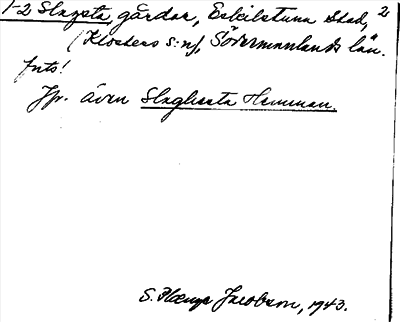 1-2 Slagsta gårdar, Eskilstuna stad, 2
(Klosters s:n), Södermanlands län.
Jfr. även Slaglista Hemman.
S. Jacobson, 1943.